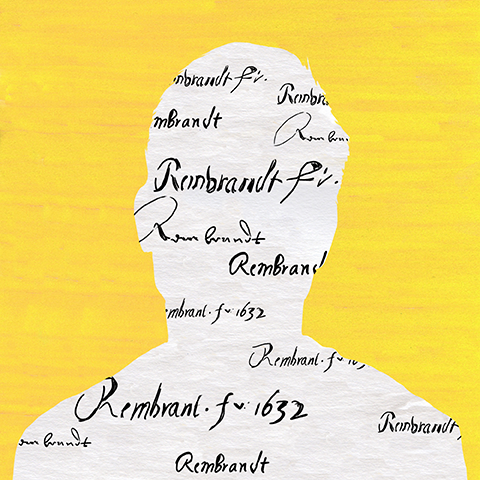 mbrandt fv.
Rembra
mbrandt
Rembran
Rembrandt fv.
Rembrandt
Rembrand
embrant. f v 1632
Rembrant. f v 163
Rembrant. f v: 1632
Rembrandt,
embrandt
Rembrandt